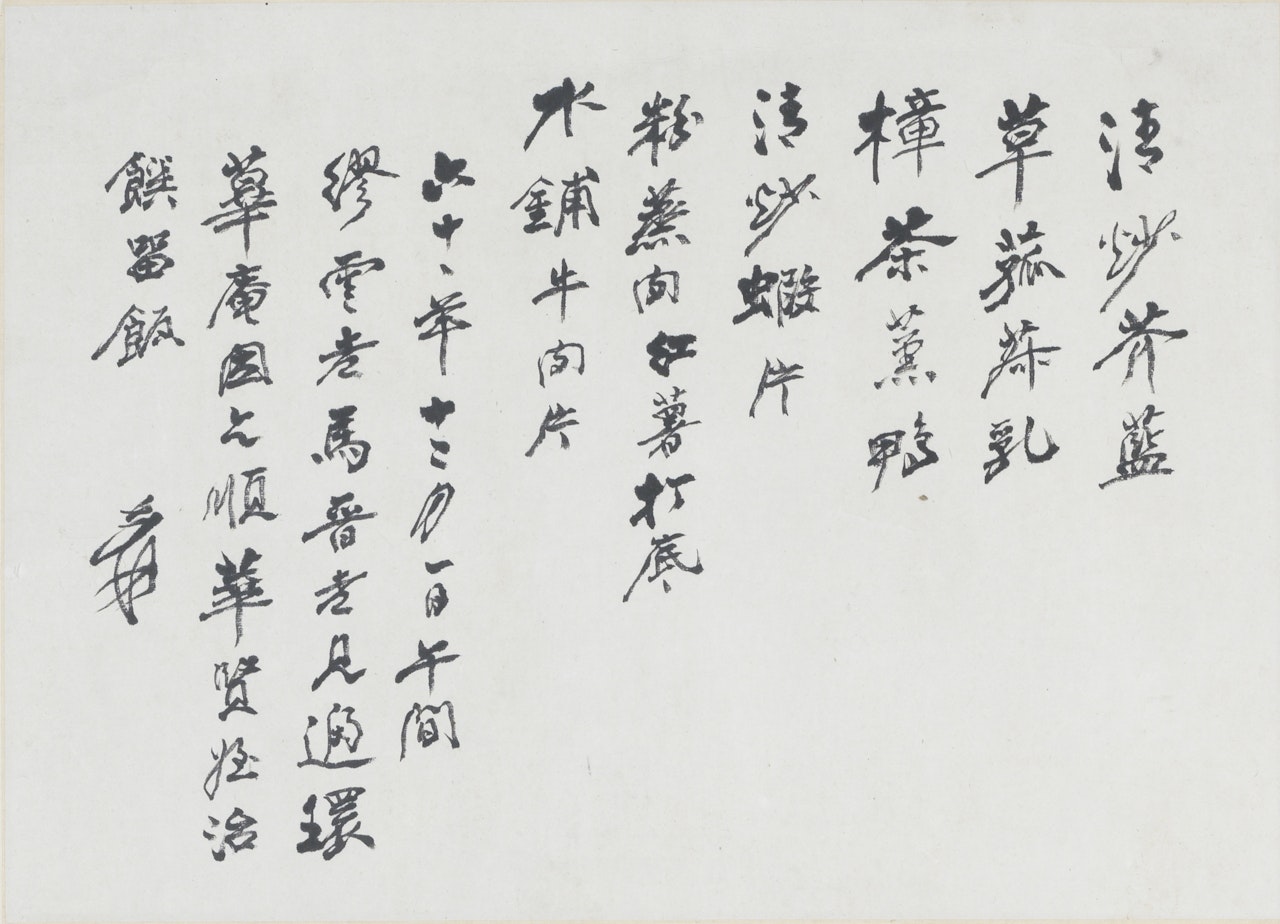 清炒芥藍
草菰菽乳
樟茶薰鴨
清炒蝦片
粉蒸肉紅薯打底
水鋪牛肉片
六十一年十二月一日午間
繆雲老馬晉老見過環
蓽庵因順華賢姪治
饌留飯 爰